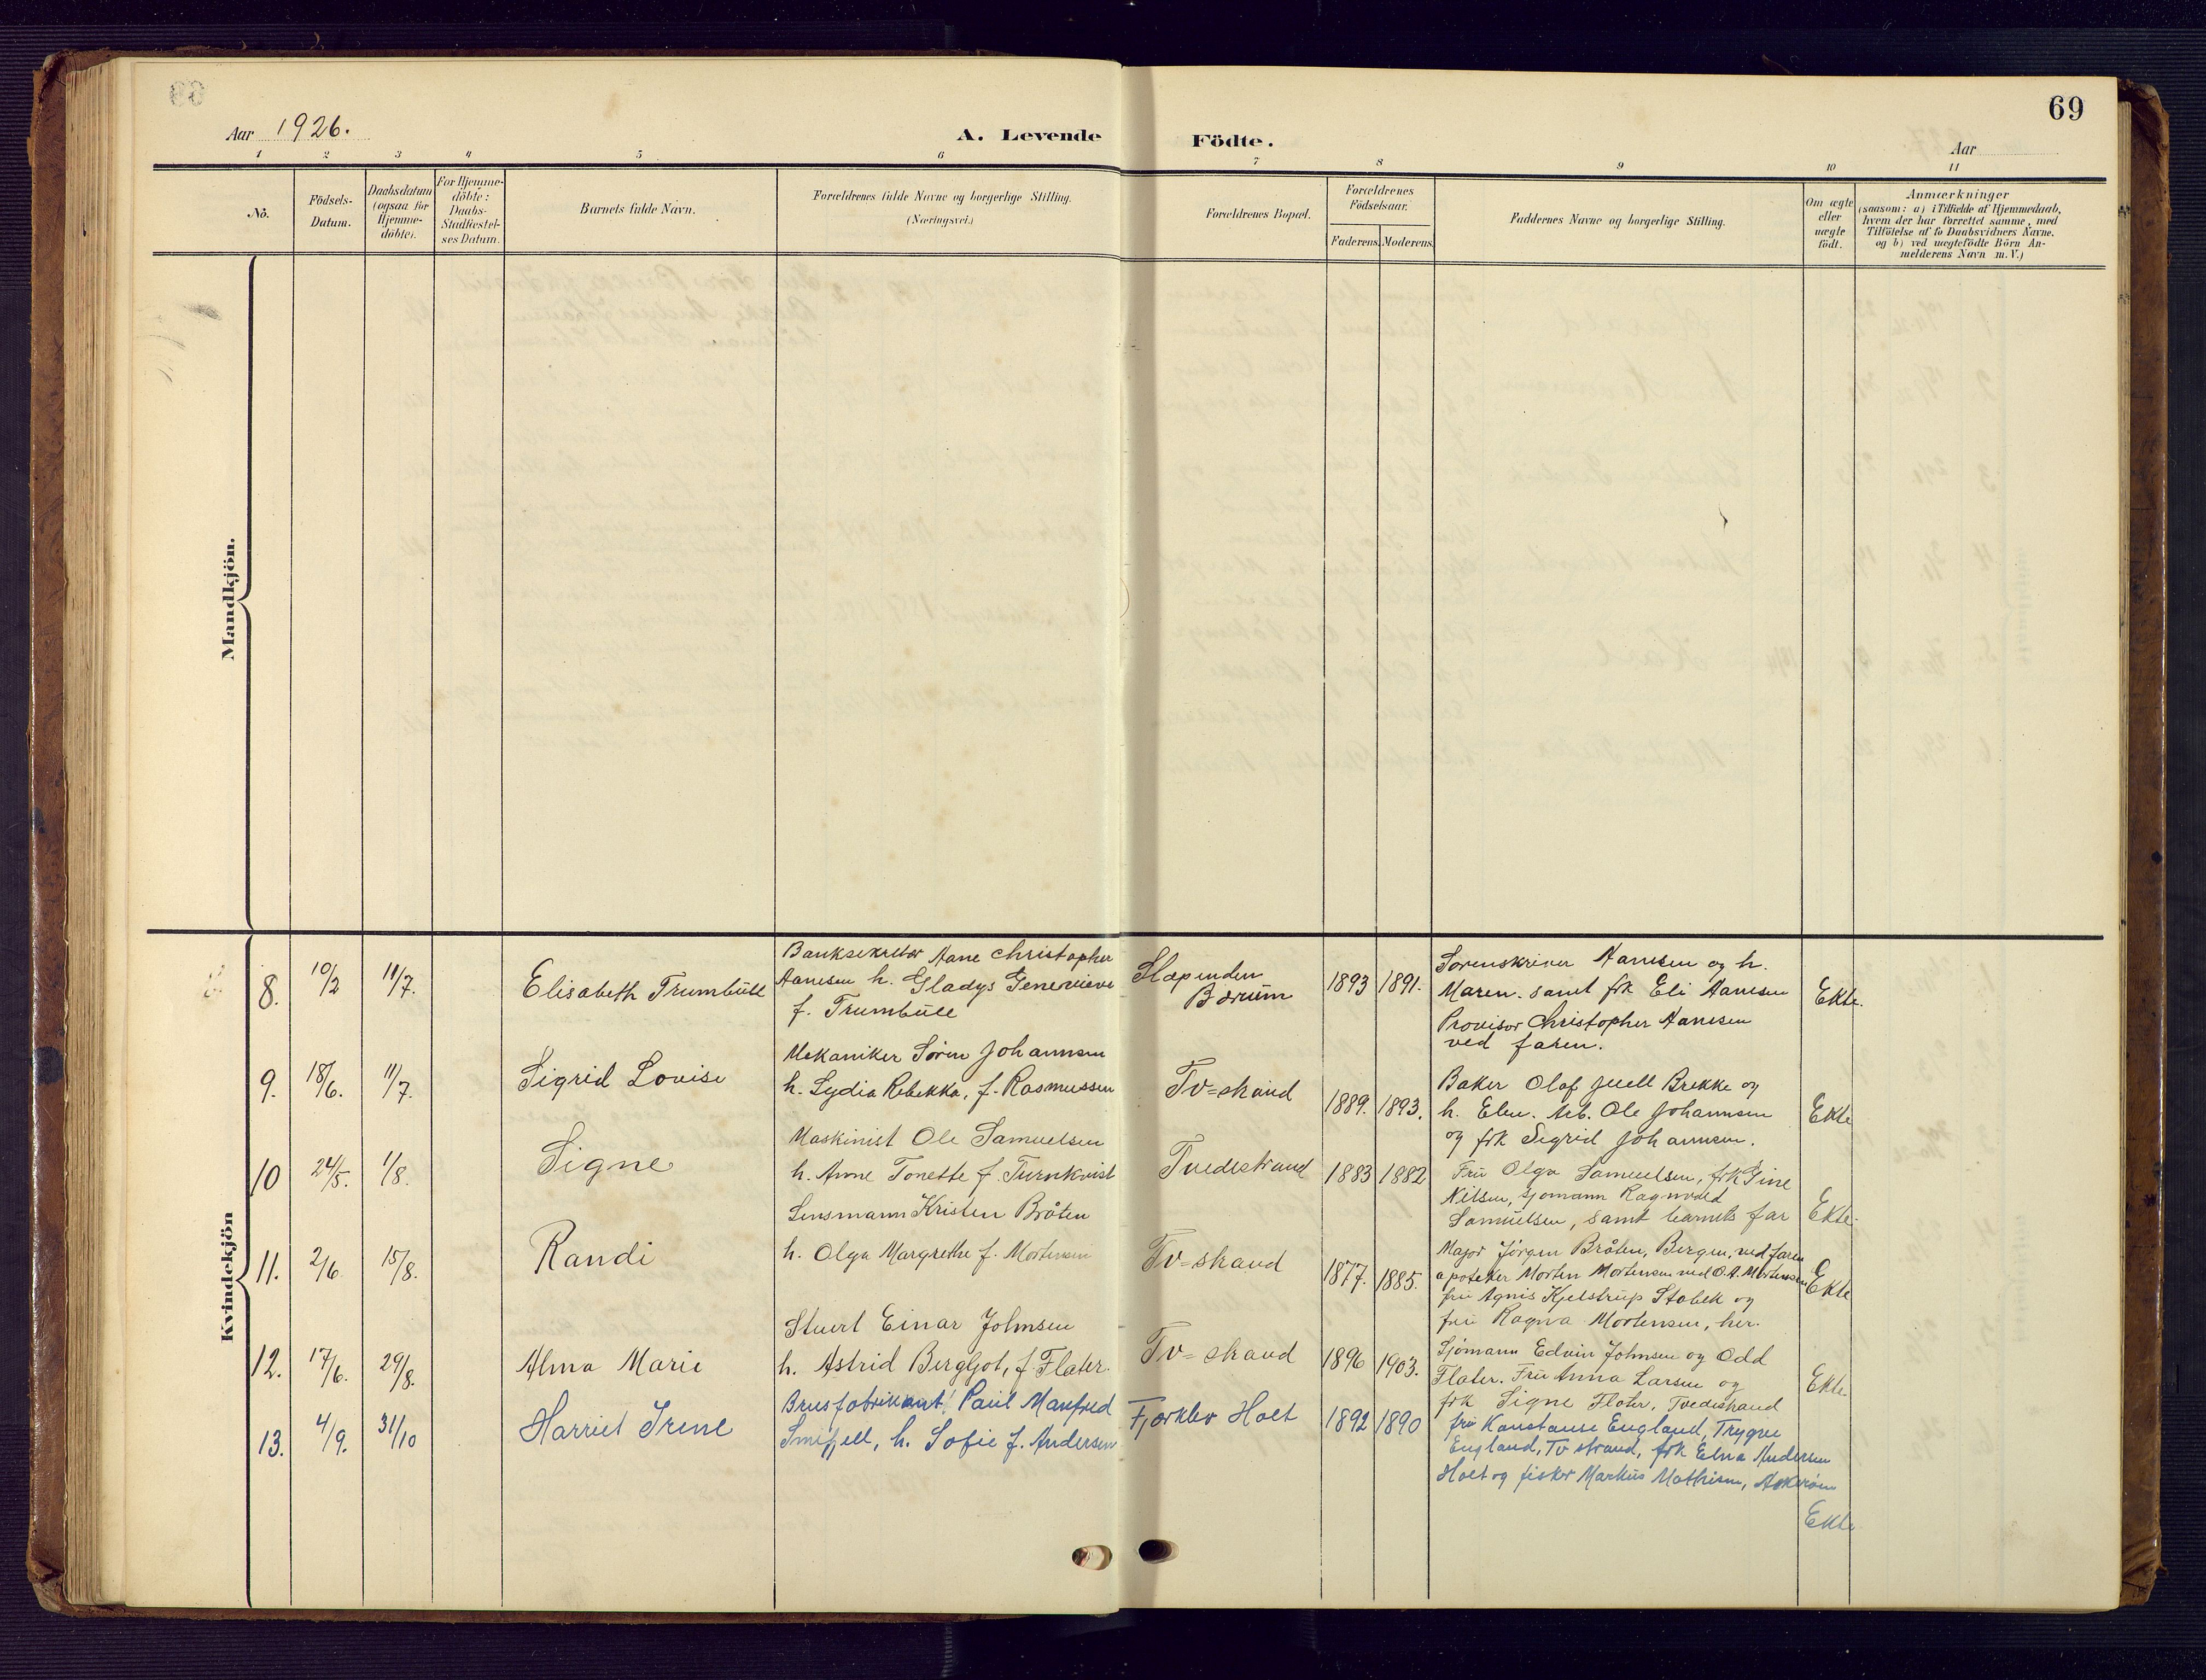 69
Aar 1926.
A. Levende Födte.
Aar
1 2 3 4 5 6 7 8 9 10 11
No.
Födsels-
Datum.
Daabsdatum
(ogsaa for
Hjemme-
döbte).
For Hjemme-
döbte:
Daabs-
Stadfæstel-
ses Datum.
Barnets fulde Navn.
Forældrenes fulde Navne og borgerlige Stilling.
(Næringsvei.)
Forældrenes Bopæl.
Forældrenes
Födselsaar.
Faderens. Moderens.
Faddernes Navne og borgerlige Stilling.
Om ægte
eller
uægte
födt.
Anmærkninger
(saasom: a) i Tilfælde af Hjemmedaab,
hvem der har forrettet samme, med
Tilföielse af to Daabsvidners Navne.
og b) ved uægtefödte Börn An-
melderens Navn m.V.)
Mandkjön.
Kvindekjön
8. 10/2 11/7. Elisabeth Trumbull
Banksekretær Aane Christopher
Aanesen h. Gladys Genevieve
f. Trumbull
Slæpenden
Bærum
1893 1891.
Sorenskriver Aanesen og h.
Maren. samt frk Eli Aanesen
Provisor Christopher Aanesen
ved faren.
Ekte.
9. 18/6. 11/7. Sigrid Lovise
Mekaniker Søren Johannsen
h. Lydia Rebekka, f. Rasmussen
Tv=strand
1889. 1893.
Baker Olaf Juell Brekke og
h. Elen. Arb. Ole Johannsen
og frk Sigrid Johannsen.
Ekte
10 24/5. 1/8. Signe
Maskinist Ole Samuelsen
h. Anne Tonette f. Turnkvist
Tvedestrand
1883 1882
Fru Olga Samuelsen, frk Gine
Nilsen, sjømann Ragnvald
Samuelsen, samt barnets far
Ekte.
11. 2/6 15/8. Randi
Lensmann Kristen Bråten
h. Olga Margrethe f. Mortensen
Tv=strand
1877. 1885.
Major Jørgen Bråten, Bergen, ved faren
apoteker Morten Mortensen ved O.A. Mortensen
fru Agnes Kjelstrup Stabek og
fru Ragna Mortensen, her.
Ekte
12. 17/6. 29/8. Alma Marie
Stuert Einar Johnsen
h. Astrid Bergljot, f. Flater.
Tv=strand
1896 1903.
Sjømann Edvin Johnsen og Odd
Flater. Fru Anna Larsen og
frk Signe Flater, Tvedestrand
Ekte.
13. 4/9. 31/10 Harriet Irene
Brusfabrikant Paul Manfred
Smefjell, h. Sofie f. Andersen
Fjærklev Holt
1892 1890
fru Konstanse England, Trygve
England, Tv strand, frk Elna Andersen
Holt og fisker Markus Mathisen, Askerøen
Ekte.